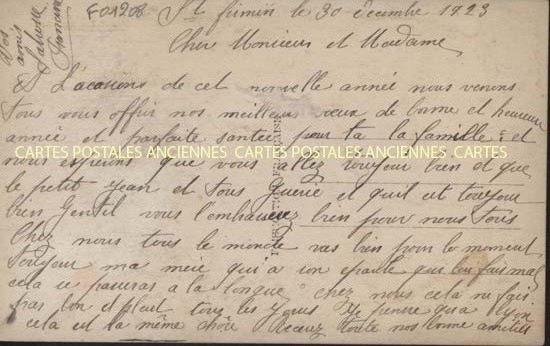 F01208
St firmin le 30 decembre 1923
Cher Monsieur et Madame
A L'acasions de cet nouvelle année nous venons
Tous vous offrir nos meilleurs vœux de bonne et heureuse
année et parfaite santée pour ta la famille et
nous esperons que vous allez toujour bien et que
CARTES POSTALES ANCIENNES CARTES POSTALES ANCIENNES CARTES
le petit jean et Tous Guerie et quil est toujour
bien Gentil vous l'embrasserez bien pour nous Tous
Chez nous tous le monde vas bien pour le moment
Toujour ma mere qui a son epaule qui lui fais mal
cela ce passeras a la longue chez nous cela ne fais
pas bon il pleut tous les jours Je pense qu a Lyon
cela est la même chose Recevez toute nos bonne amitiés
Vos
amis